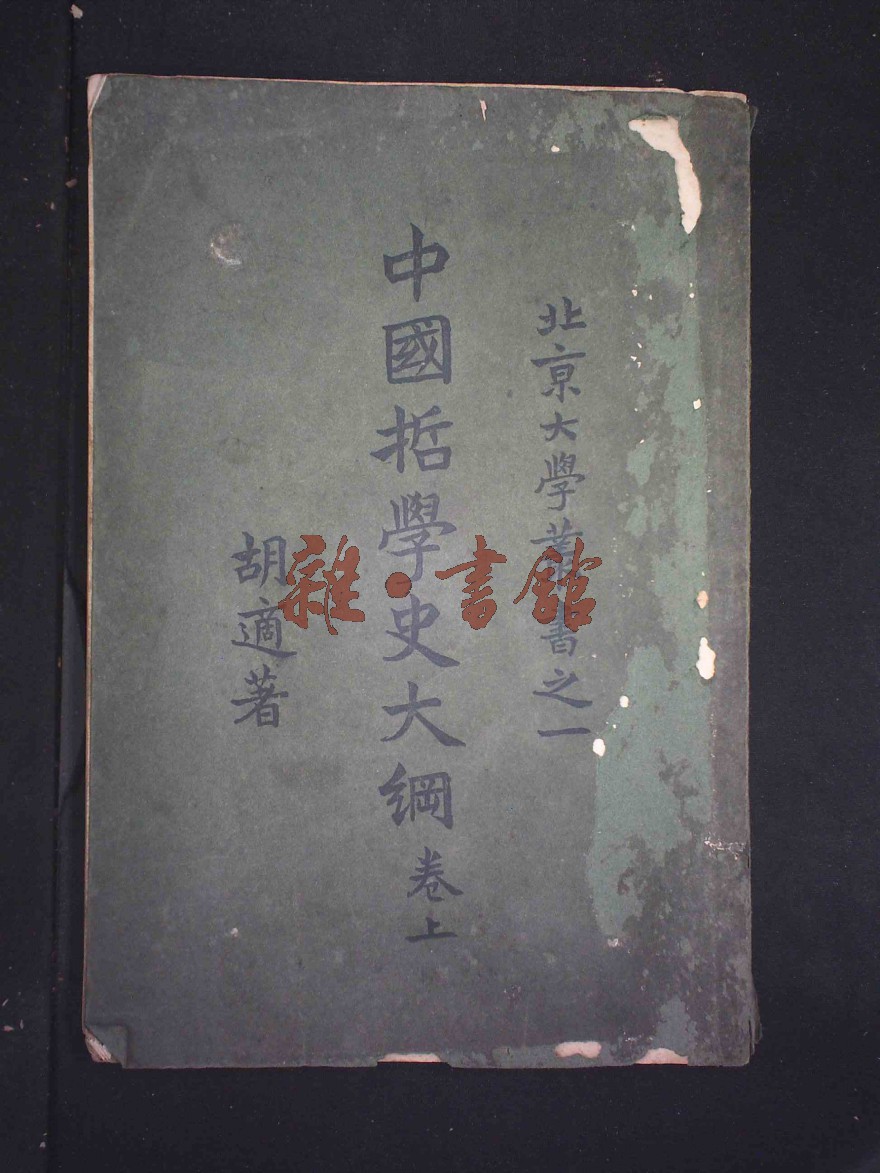 北京大學叢書之一
中國哲學史大綱 卷上
胡適著
雜·書館